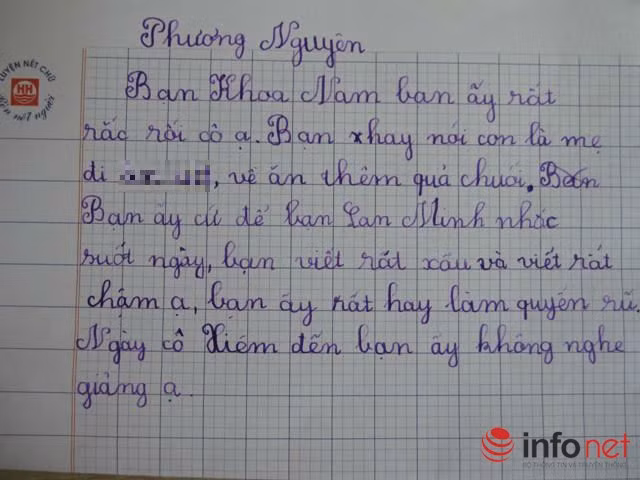 Phương Nguyên
LUYỆN NÉT CHỮ
HH
Rèn nét người
Bạn Khoa Nam bạn ấy rất
rắc rối cô ạ. Bạn hay nói con là mẹ
di , về ăn thêm quả chuối.
Bạn ấy cứ để bạn Lan Minh nhắc
suốt ngày, bạn viết rất xấu và viết rất
chậm ạ, bạn ấy rất hay làm quyển rũ.
Ngày cô Xiêm đến bạn ấy không nghe
giảng ạ.
infonet
BỘ THÔNG TIN VÀ TRUYỀN THÔNG